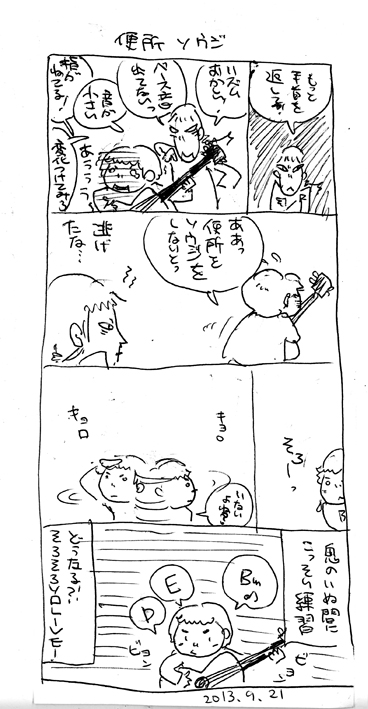 便所ソウジ
もっと
手首を
返して!
リズム
おかしい!
ベース音
出てないっ
音が
小さい
指が
ねてる!
あううう
変化つけてみろ
ああっ
便所を
ソウジを
しないとっ
逃げ
たな…
そろーっ
キョロ
キョロ
いない
よね
鬼のいぬ間に
こっそり練習
Bm
E
D
ビョン
ビョーン
どうなる?!
そろそろソロLIVE!
2013.9.21